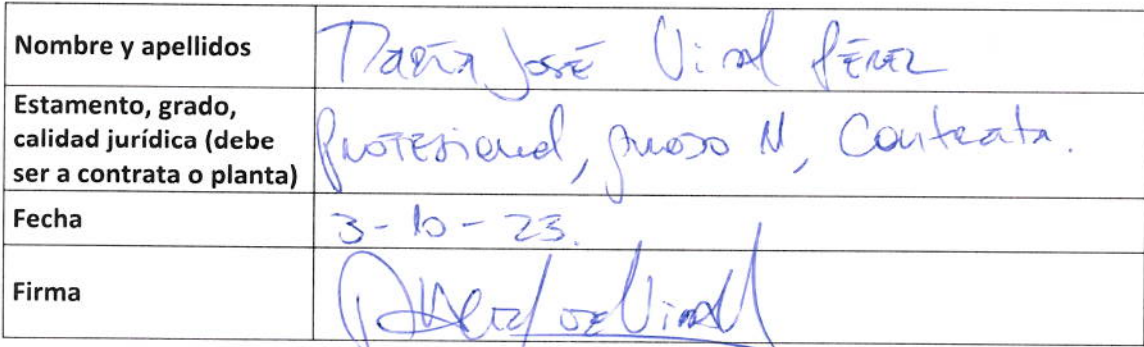 Nombre y apellidos
María José Vial Pérez
Estamento, grado,
calidad jurídica (debe
ser a contrata o planta)
Profesional, grado, Contrata.
Fecha
3-10-23.
Firma